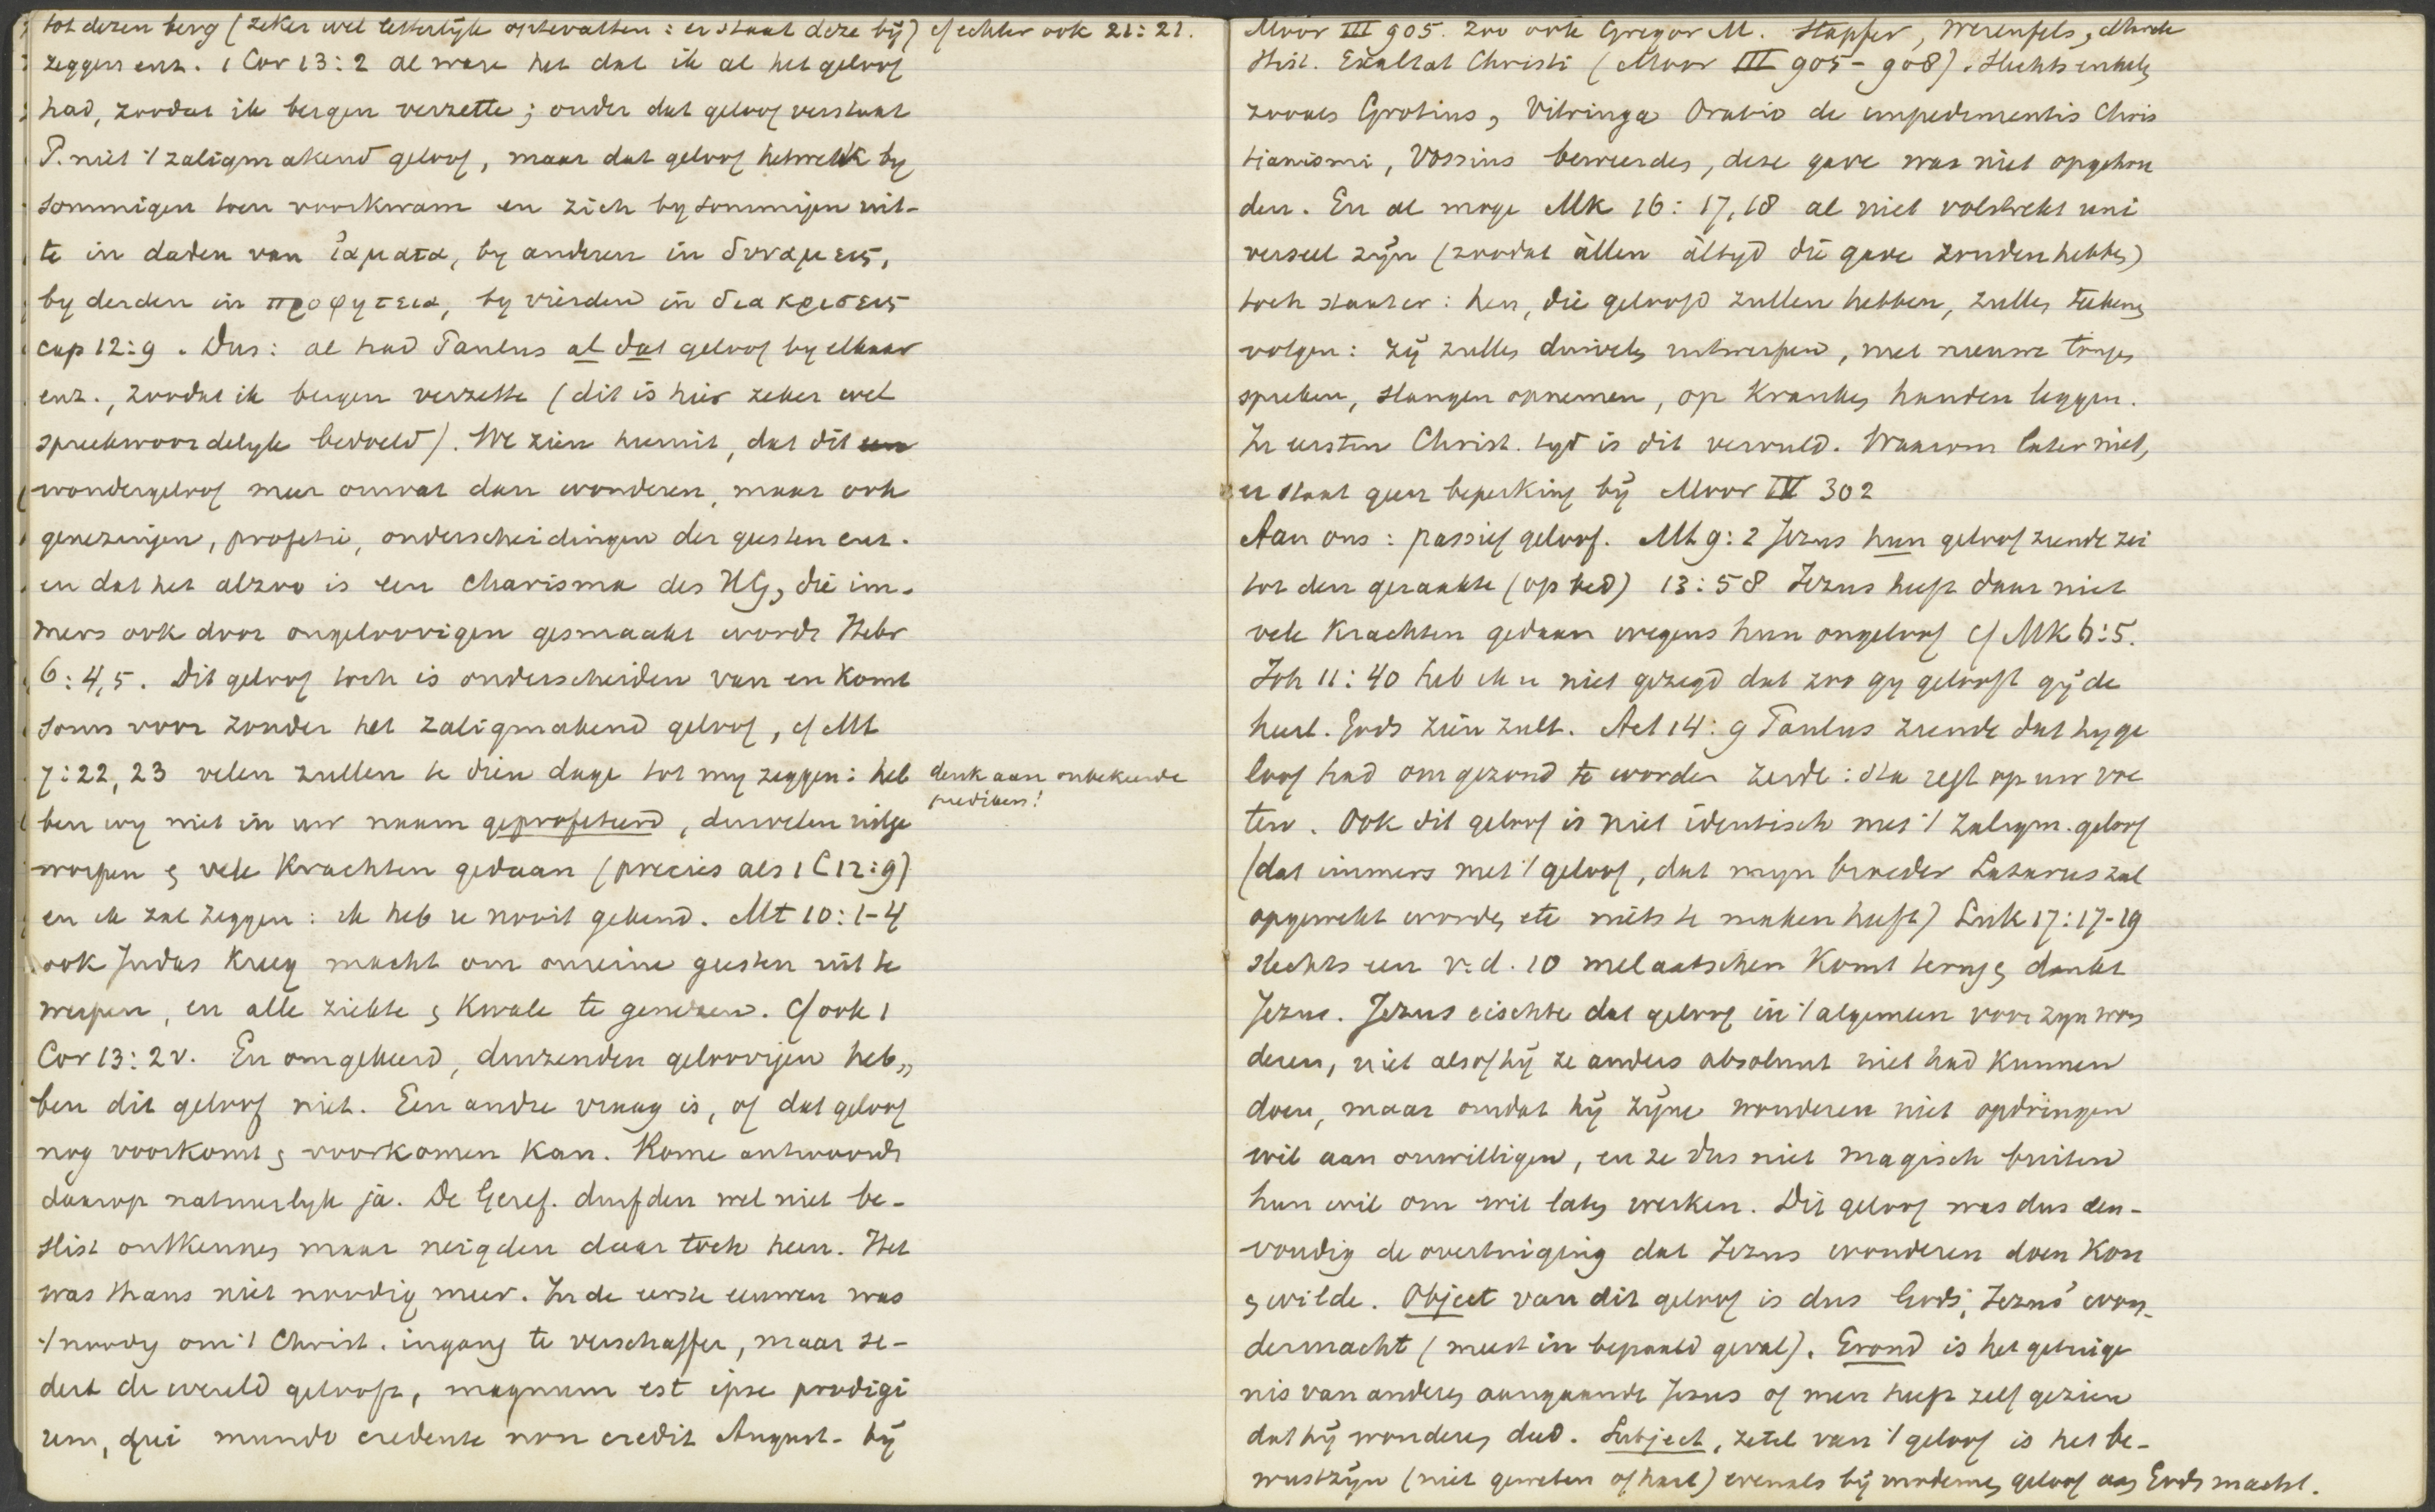 tot dezen berg (zeker wel letterlijk optevatten: er staat deze bij) cf echter ook 21:21.
zeggen enz. 1 Cor 13:2 al ware het dat ik al het geloof
had, zoodat ik bergen verzette; onder dat geloof verstaat
P. niet 't zaligmakend geloof, maar dat geloof hetwelk by
sommigen toen voorkwam en zich by sommigen uit-
te in daden van ἰαματα, by anderen in δυναμεις,
by derden in προφητεια, by vierden in διακρισεις
cap 12:9. Dus: al had Paulus al dat geloof by elkaar
enz., zoodat ik bergen verzette (dit is hier zeker wel
spreekwoordelyk bedoeld). We zien hieruit, dat dit een
wondergeloof meer omvat dan wonderen, maar ook
genezingen, profetie, onderscheidingen der geesten enz.
en dat het alzoo is een charisma des HG, die im-
mers ook door ongeloovigen gesmaakt wordt Hebr
6:4,5. Dit geloof toch is onderscheiden van en komt
soms voor zonder het zaligmakend geloof, cf Mt
7:22,23 velen zullen te dien dage tot my zeggen: heb
denk aan onbekeerde
predikers!
ben wy niet in uw naam geprofeteerd, duivelen uitge
worpen & vele krachten gedaan (precies als 1 C 12:9)
en ik zal zeggen: ik heb u nooit gekend. Mt 10:1-4
ook Judas kreeg macht om onreine geesten uit te
werpen, en alle ziekte & kwale te genezen. Cf ook 1
Cor 13:2v. En omgekeerd, duizenden geloovigen heb„
ben dit geloof niet. Een andre vraag is, of dat geloof
nog voorkomt & voorkomen kan. Rome antwoordt
daarop natuurlyk ja. De Geref. durfden wel niet be-
slist ontkennen maar neigden daar toch heen. Het
was thans niet noodig meer. In de eerste eeuwen was
't noodig om 't Christ. ingang te verschaffen, maar se-
dert de wereld gelooft, magnum est ipse prodigi
um, qui mundo credente non credit August. bij
Moor III 905. Zoo ook Gregor M. Stapfer, Werenfels,
Hist. Exaltat Christi (Moor III 905-908). Slechts enkelen
zooals Grotius, Vitringa Oratio de impedimentis Chris
tianismi, Vossius beweerden, deze gave was niet opgehou
den. En al moge Mk 16:17,18 al niet volstrekt uni
verseel zijn (zoodat àllen àltyd die gave zouden hebben)
toch staat er: hen, die geloofd zullen hebben, zullen teekenen
volgen: zij zullen duivelen uitwerpen, met nieuwe tongen
spreken, slangen opnemen, op kranken handen leggen.
In eersten Christ. tyd is dit vervuld. Waarom later niet,
er staat geen beperking bij Moor IV 302
Aan ons: passief geloof. Mt 9:2 Jezus hun geloof ziende zei
tot den geraakte (op bed) 13:58 Jezus heeft daar niet
vele krachten gedaan wegens hun ongeloof cf Mk 6:5.
Joh 11:40 heb ik u niet gezegd dat zoo gy gelooft gij de
heerl. Gods zien zult. Act 14:9 Paulus ziende dat hy ge
loof had om gezond te worden zeide: sta regt op uw voe
ten. Ook dit geloof is niet identisch met 't zaligm. geloof
(dat immers met 't geloof, dat myn broeder Lazarus zal
opgewekt worden etc niets te maken heeft) Luk 17:17-19
slechts een v.d. 10 melaatschen komt terug & dankt
Jezus. Jezus eischte dat geloof in 't algemeen voor zyn won
deren, niet alsof hij ze anders absoluut niet had kunnen
doen, maar omdat hij zijne wonderen niet opdringen
wil aan onwilligen, en ze dus niet magisch buiten
hun wil om wil laten werken. Dit geloof was dus een-
voudig de overtuiging dat Jezus wonderen doen kon
& wilde. Object van dit geloof is dus Gods, Jezus' won-
dermacht (meest in bepaald geval). Grond is het getuige
nis van anderen aangaande Jezus of men heeft zelf gezien
dat hij wonderen deed. Subject, zetel van 't geloof is het be-
wustzijn (niet geweten of hart) evenals bij modernen geloof aan Gods macht.